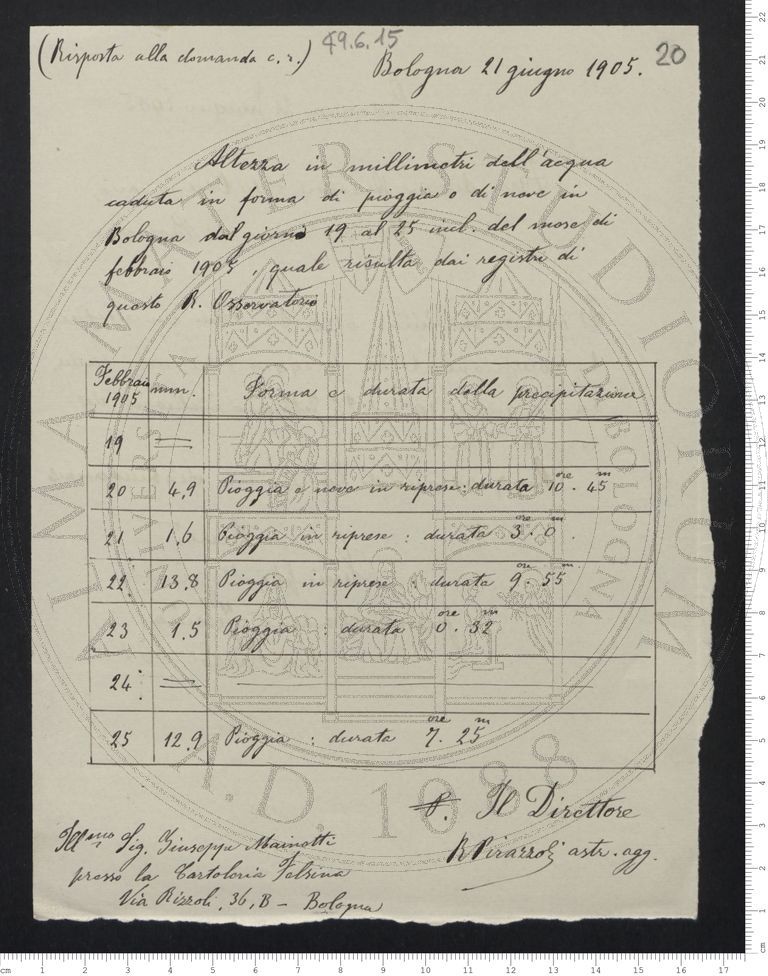 (Risposta alla domanda c. r.)
49.6.15
20
Bologna 21 giugno 1905.
Altezza in millimetri dell'acqua
caduta in forma di pioggia o di neve in
Bologna dal giorno 19 al 25 incl. del mese di
febbraio 1905, quale risulta dai registri di
questo R. Osservatorio
Febbraio 1905 mm. Forma e durata della precipitazione
19 = —
20 4,9 Pioggia e neve in riprese: durata 10 ore. 45 m
21 1,6 Pioggia in riprese: durata 3 ore. 0 m.
22 13,8 Pioggia in riprese: durata 9 ore. 55 m
23 1,5 Pioggia: durata 0 ore. 32 m
24 = —
25 12,9 Pioggia: durata 7 ore. 25 m
P. Il Direttore
R Pirazzoli astr. agg.
Ill.mo Sig. Giuseppe Mainotti
presso la Cartoleria Felsina
Via Rizzoli, 36, B – Bologna
ALMA MATER STUDIORUM
A.D. 1088